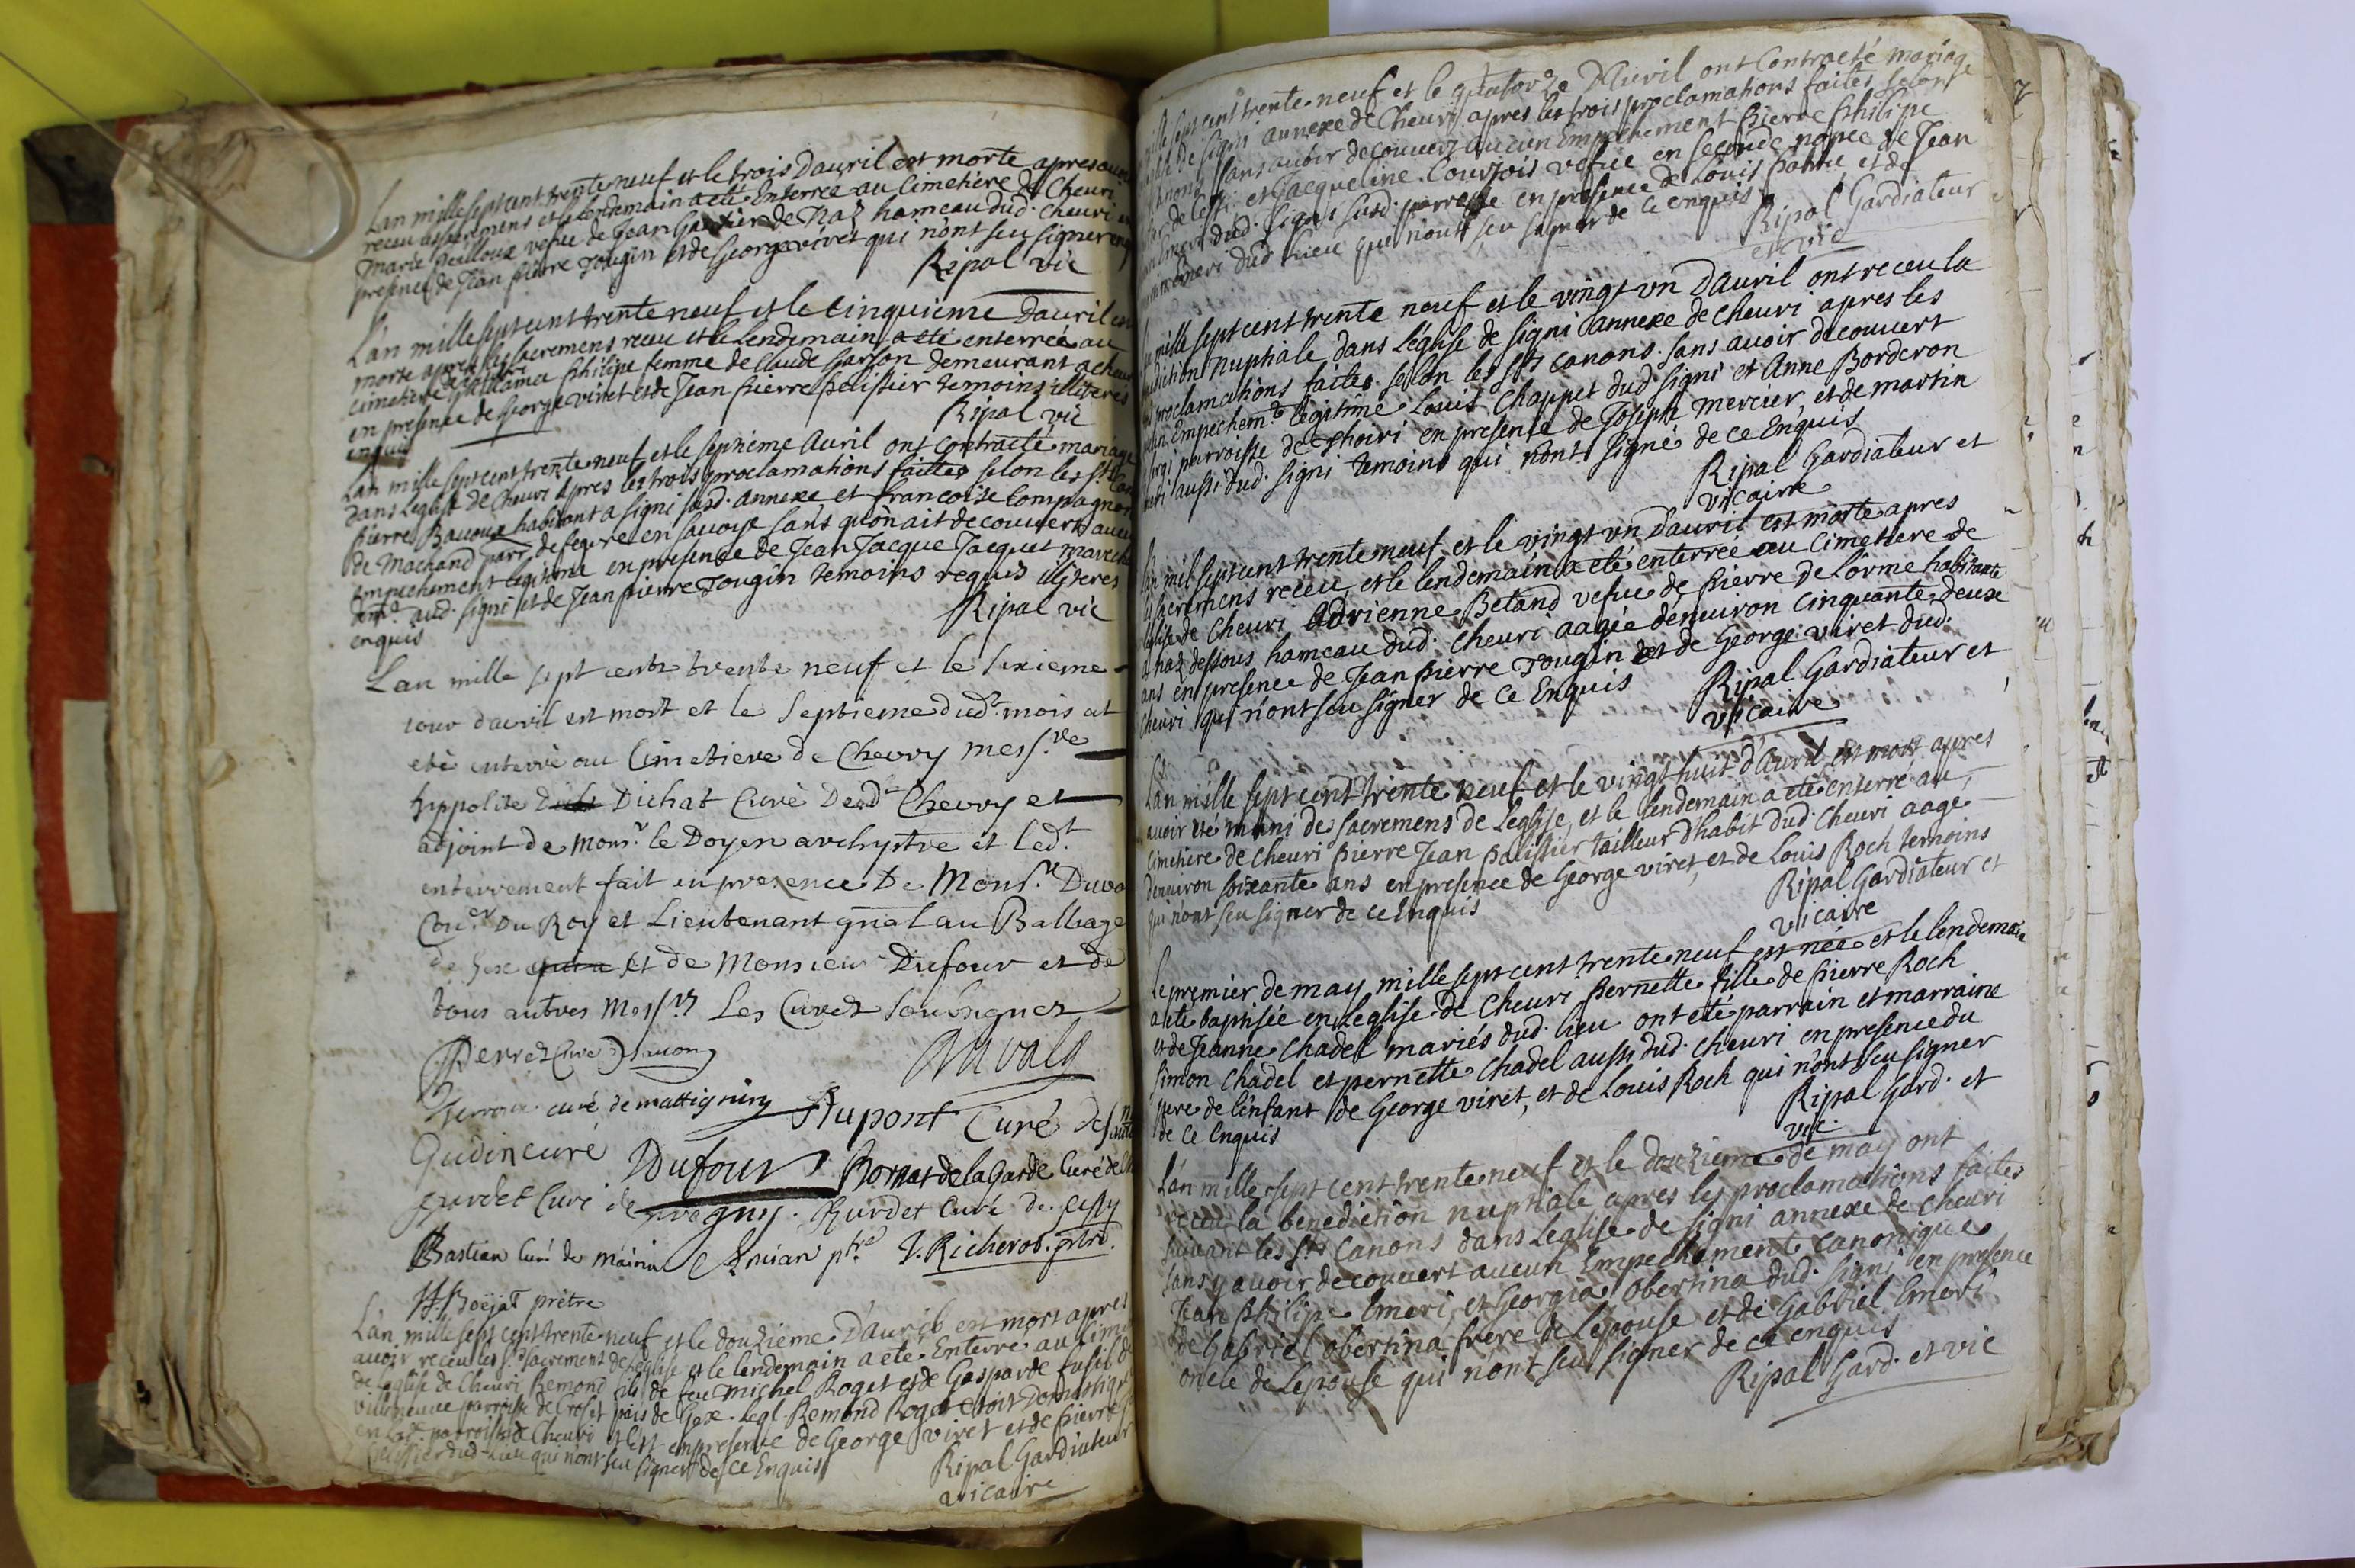 Lan mille sept cent trente neuf et le trois Dauril est morte apres auoir
receu les sacremens et le lendemain a eté Enterrée au Cimetiere de Cheuri
Marie veufue de Jean de Naz hameau dud. Cheuri en
presence de Jean pierre Tougin et de George viret qui nont seu signer enq
Ripal vic
L'an mille sept cent trente neuf et le Cinquieme Dauril est
morte apres les sacremens receu et le Lendemain a eté enterrée au
cimetiere Philipe femme de Claude Garson demeurant a cheuri
en presence de George viret et de Jean pierre pelissier temoins illiteres
enquis
Ripal vic
Lan mille sept cent trente neuf et le septieme Auril ont contracté mariage
dans Leglise de Cheuri apres les trois proclamations faites selon les sts Can
pierre Bauoux habitant a signi susd. annexe et francoise Compagnon
de Machand parr. de en sauoye sans quon ait decouvert aucun
empechement legitime en presence de Jean Jacque Jacquet
aud. signi et de Jean pierre Tougin temoins requis illiteres
enquis
Ripal vic
Lan mille sept cents trente neuf et le sixieme
iour davril est mort et le septieme dud.t mois at
eté enterré au Cimetiere de Chevry mess.re
hippolite Dichat Curé Dud.t Chevry et
adjoint de mons.r le Doyen archyptre et led.t
enterrement fait en presence De Mons.r Duva
Con.er Du Roy et Lieutenant gnal au Balliage
de Gex et de Monsieur Dufour et de
tous autres Mess.rs Les Curez soubsignez
Perrez Curé
Duvala
curé de mattigniny Dupont Curé de
Gudin curé Dufour Bornat de la Garde Curé de
Gurdet Curé de pregny. Hurdet Curé de Cessy
Bastian Curé de Mairin ptre J. Richerot. prtre.
prêtre
L'an mille sept cent trente neuf et le douzieme D'auril est mort apres
auoir receu les s.ts sacrement de leglise et le lendemain a eté Enterré au cime
de Leglise de Cheuri Remond fils de feu Michel Roget et de Gasparde
villeneuve parroisse de Croset païs de Gex. Legl Remond Roget etoit Domestique
en lad. parroisse de Cheuri en presence de George viret et de pierre
pelissier dud. Lieu qui n'ont seu signer de ce Enquis
Ripal Gardiateur
vicaire
mille sept cent trente neuf et le quatorze D'Auril ont Contracté mariage
de signi annexe de Cheuri apres les trois proclamations faites selon
canons sans auoir decouvert aucun Empechement pierre Philipe
et Jacqueline Courtois vefue en seconde nopce de Jean
dud. signi susd. parroisse en presence de Louis et de
dud. Lieu qui n'ont seu signer de ce enquis
Ripal Gardiateur
et vic
mille sept cent trente neuf et le vingt un D'auril ont receu la
nuptiale dans L'eglise de signi annexe de Cheuri apres les
proclamations faites selon les sts canons. sans auoir decouvert
Empechem.t legitime Louis Chappet dud. signi et Anne Borderon
parroisse de en presence de Joseph Mercier et de martin
aussi dud. signi temoins qui n'ont signé de ce Enquis
Ripal Gardiateur et
vicaire
L'an mil sept cent trente neuf et le vingt un D'auril est morte apres
sacremens receu, et le lendemain a eté enterrée au Cimetiere de
leglise de Cheuri Adrienne Betand vefue de pierre de Lorme habitante
a naz dessous hameau dud. Cheuri aagée denuiron cinquante deux
ans en presence de Jean pierre Tougin et de George viret dud.
Cheuri qui n'ont seu signer de ce Enquis
Ripal Gardiateur et
vicaire
L'an mille sept cent trente neuf et le vingt huit d'auril est mort apres
auoir eté muni des sacremens de Leglise, et le lendemain a eté enterré au
Cimetiere de Cheuri pierre Jean pelissier tailleur d'habit dud. Cheuri aage
denuiron soixante ans en presence de George viret, et de Louis Roch temoins
qui n'ont seu signer de ce Enquis
Ripal Gardiateur et
vicaire
Le premier de may mille sept cent trente neuf est née et le lendemain
a eté baptisée en Leglise de Cheuri Pernette fille de pierre Roch
et de Jeanne Chadel mariés dud. lieu ont eté parrain et marraine
simon Chadel et pernette Chadel aussi dud. Cheuri en presence du
pere de l'enfant de George viret, et de Louis Roch qui n'ont seu signer
de ce Enquis
Ripal Gard. et
vic.
L'an mille sept cent trente neuf et le douzieme de may ont
receu la benediction nuptiale apres les proclamations faites
suivant les s.ts Canons dans Leglise de signi annexe de cheuri
sans y auoir decouvert aucun Empechement canonique
Jean Philipe Emeri, et Georgia Obertina dud. signi en presence
de Gabriel Obertina frere de Lepouse et de Gabriel Emeri
oncle de Lepouse qui n'ont seu signer de ce enquis
Ripal Gard. et vic